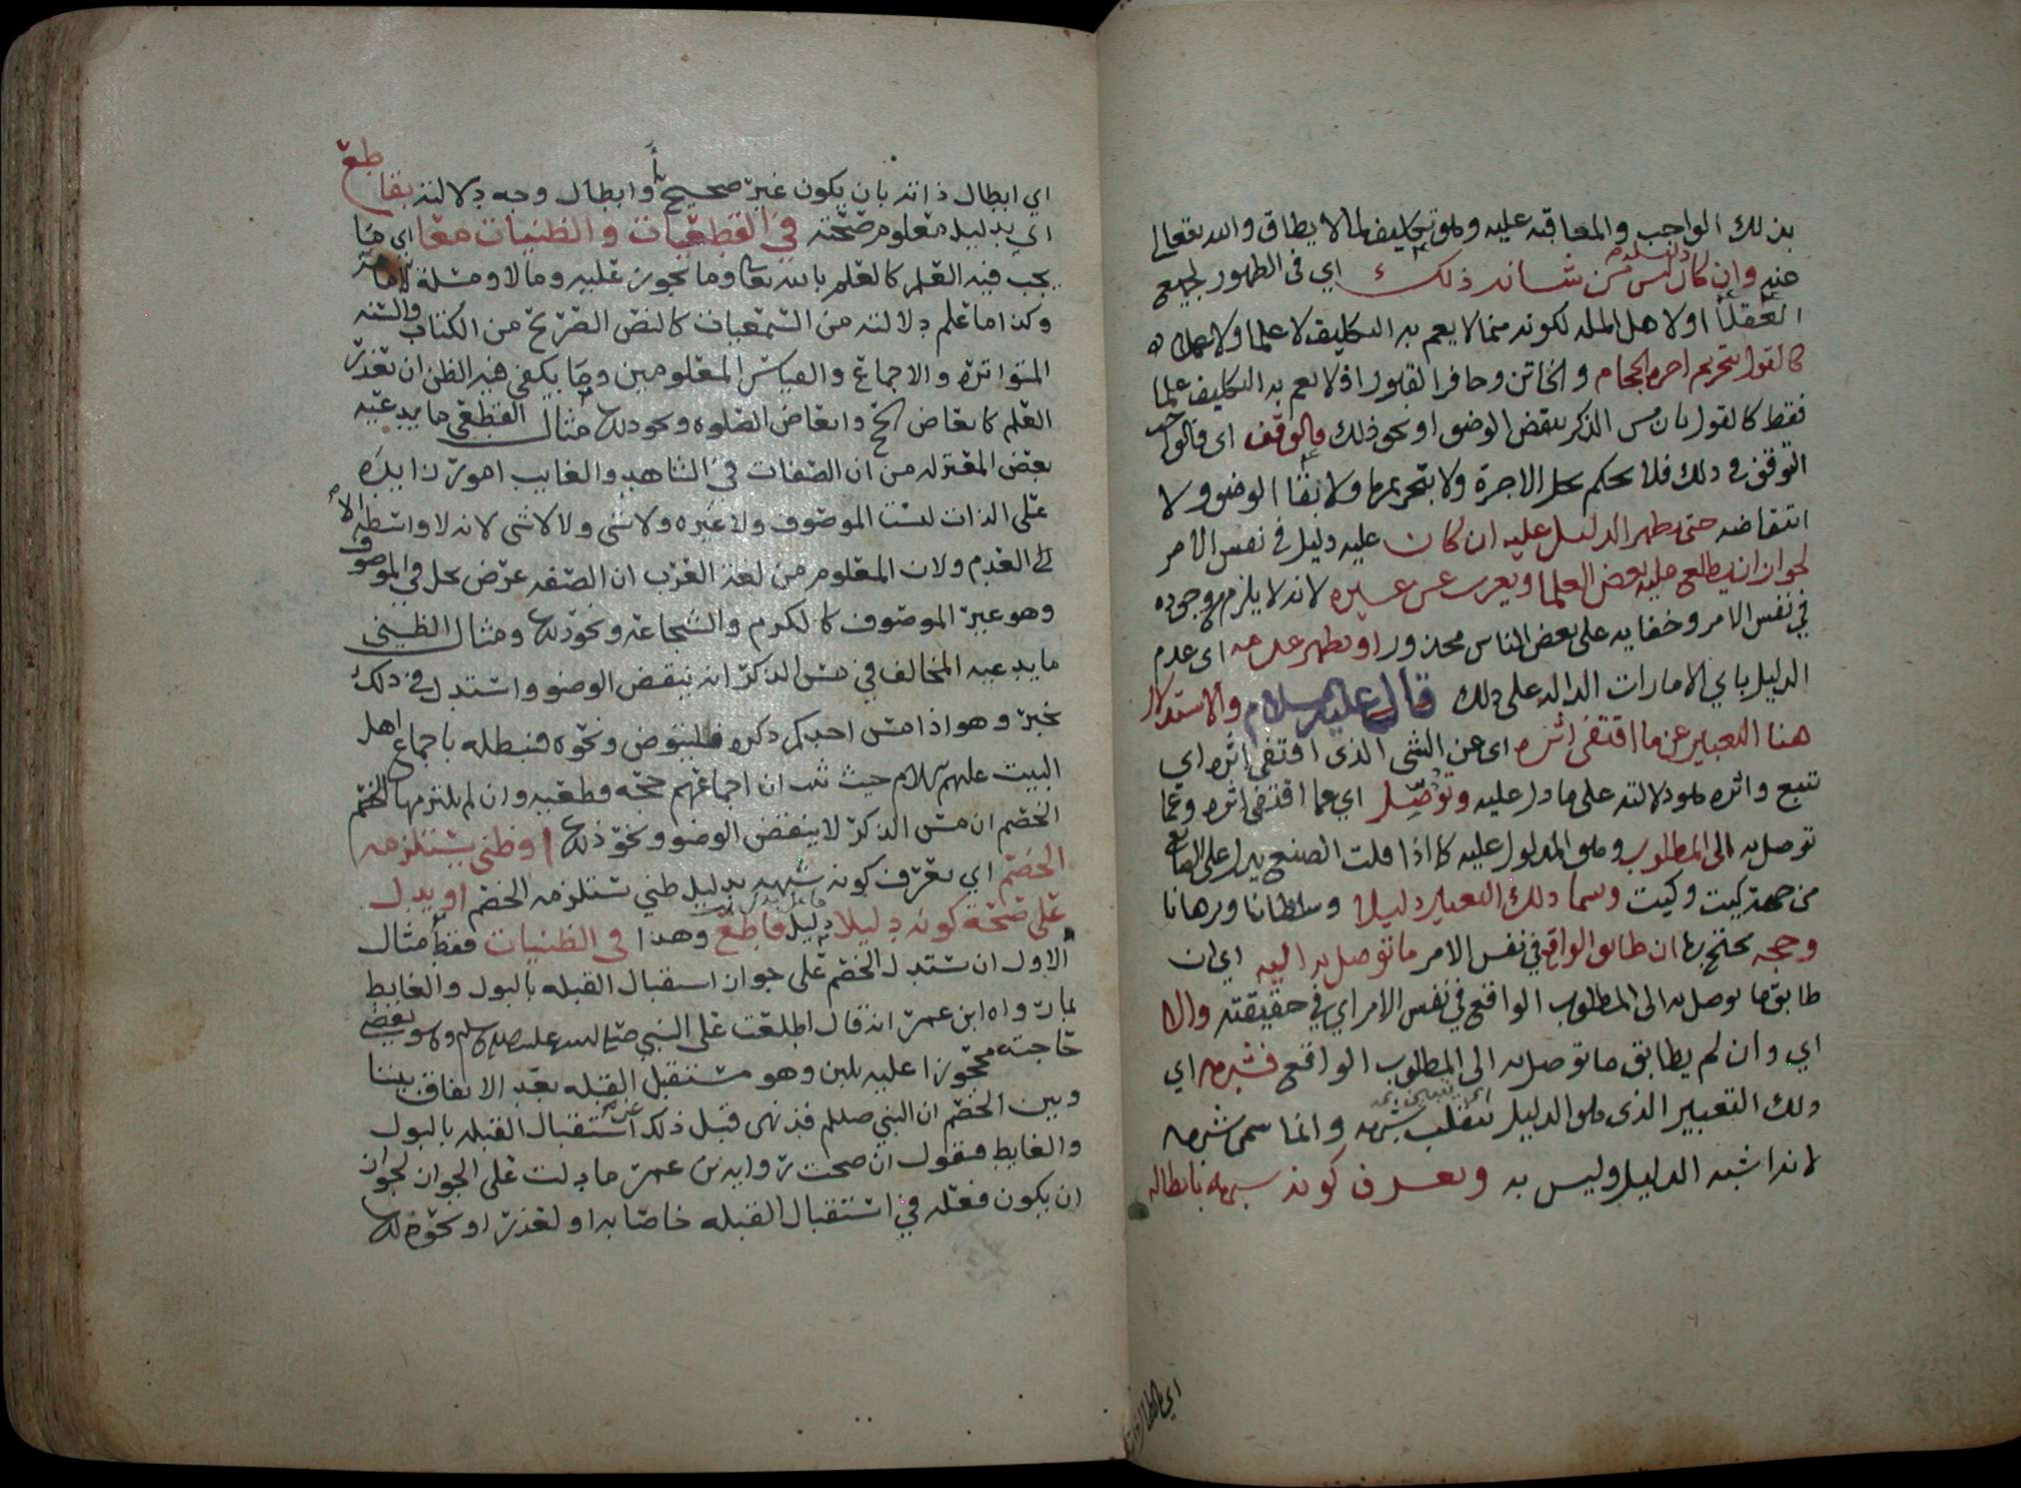 بذلك الواجب والمعاقبه عليه وهو تكليف لما لا يطاق والله يتعالى
عنه وان كان ليس من شانه ذلك اي في الظهور لجميع
العقلا او لاهل المله لكونه مما لا يعم به التكليف لا علما ولا عملا
كالقول بتحريم اجره الحجام والخاتن وحافر القبور اذ لا يعم به التكليف علما
فقط كالقول بان مس الذكر ينقض الوضو او نحو ذلك فالوقف اي فالواجب
التوقف في ذلك فلا يحكم بحل الاجرة ولا بتحريمها ولا بقا الوضو ولا
انتقاضه حتى يظهر الدليل عليه ان كان عليه دليل في نفس الامر
لجواز ان يطلع عليه بعض العلما ويعزب عن غيره لانه لا يلزم من وجوده
في نفس الامر وخفايه على بعض الناس محذور او يظهر عدمه اي عدم
الدليل باي الامارات الداله على ذلك قال عليه السلام والاستدلال
هنا التعبير عن ما اقتفي اثره اي عن الشي الذي اقتفي اثره اي
تتبع واثره هو دلالته على ما دل عليه وتوصل اي عما اقتفي اثره وعما
توصل به الى المطلوب وهو المدلول عليه كما اذا قلت الصنع يدل على الصانع
من جهة كيت وكيت وسما ذلك التعبير دليلا وسلطانا وبرهانا
وحجه يحتج بها ان طابق الواقع في نفس الامر ما توصل به اليه اي ان
طابق ما توصل به الى المطلوب الواقع في نفس الامر اي في حقيقته والا
اي وان لم يطابق ما توصل به الى المطلوب الواقع فشبهه اي
ذلك التعبير الذي هو الدليل ينقلب شبهه وانما سمي شبهه
لانه اشبه الدليل وليس به ويعرف كونه شبهه بابطاله
اي ابطال ذاته بان يكون غير صحيح او ابطال وجه دلالته بقاطع
اي بدليل معلوم صحته في القطعيات والظنيات معا اي ما
يجب فيه العلم كالعلم بالله تعا وما يجوز عليه وما لا ومسئلة الامامة
وكذا ما علم دلالته من السمعيات كالنص الصريح من الكتاب والسنه
المتواتره والاجماع والقياس المعلومين وما يكفي فيه الظن ان تعذر
العلم كانتقاض الحج وانتقاض الصلوه ونحو ذلك مثال القطعي ما يدعيه
بعض المعتزله من ان الصفات في الشاهد والغايب امور زايده
على الذات ليست الموصوف ولا غيره ولا شي ولا لا شي لانه لا واسطه الا
العدم ولان المعلوم من لغة العرب ان الصفه عرض يحل في الموصوف
وهو غير الموصوف كالكرم والشجاعه ونحو ذلك ومثال الظني
ما يدعيه المخالف في مس الذكر انه ينقض الوضو واستدل في ذلك
بخبر وهو اذا مس احدكم ذكره فليتوض ونحوه فنبطله باجماع اهل
البيت عليهم السلام حيث ثبت ان اجماعهم حجه قطعيه وان لم يلتزمها الخصم
الخصم ان مس الذكر لا ينقض الوضو ونحو ذلك او ظني يستلزمه
الخصم اي يعرف كونه شبهه بدليل ظني يستلزمه الخصم او يدل
على صحة كونه دليلا دليل قاطع وهذا في الظنيات فقط مثال
الاول ان يستدل الخصم على جواز استقبال القبله بالبول والغايط
بما رواه ابن عمر انه قال اطلعت على النبي صلى الله عليه وسلم وهو يقضي
حاجته محجوزا عليه بلبن وهو مستقبل القبله بعد الاتفاق بيننا
وبين الخصم ان النبي صللم قد نهى قبل ذلك عن استقبال القبله بالبول
والغايط فنقول ان صحت رواية بن عمر ما دلت على الجواز لجواز
ان يكون فعله في استقبال القبله خاصا به او لعذر او نحو ذلك